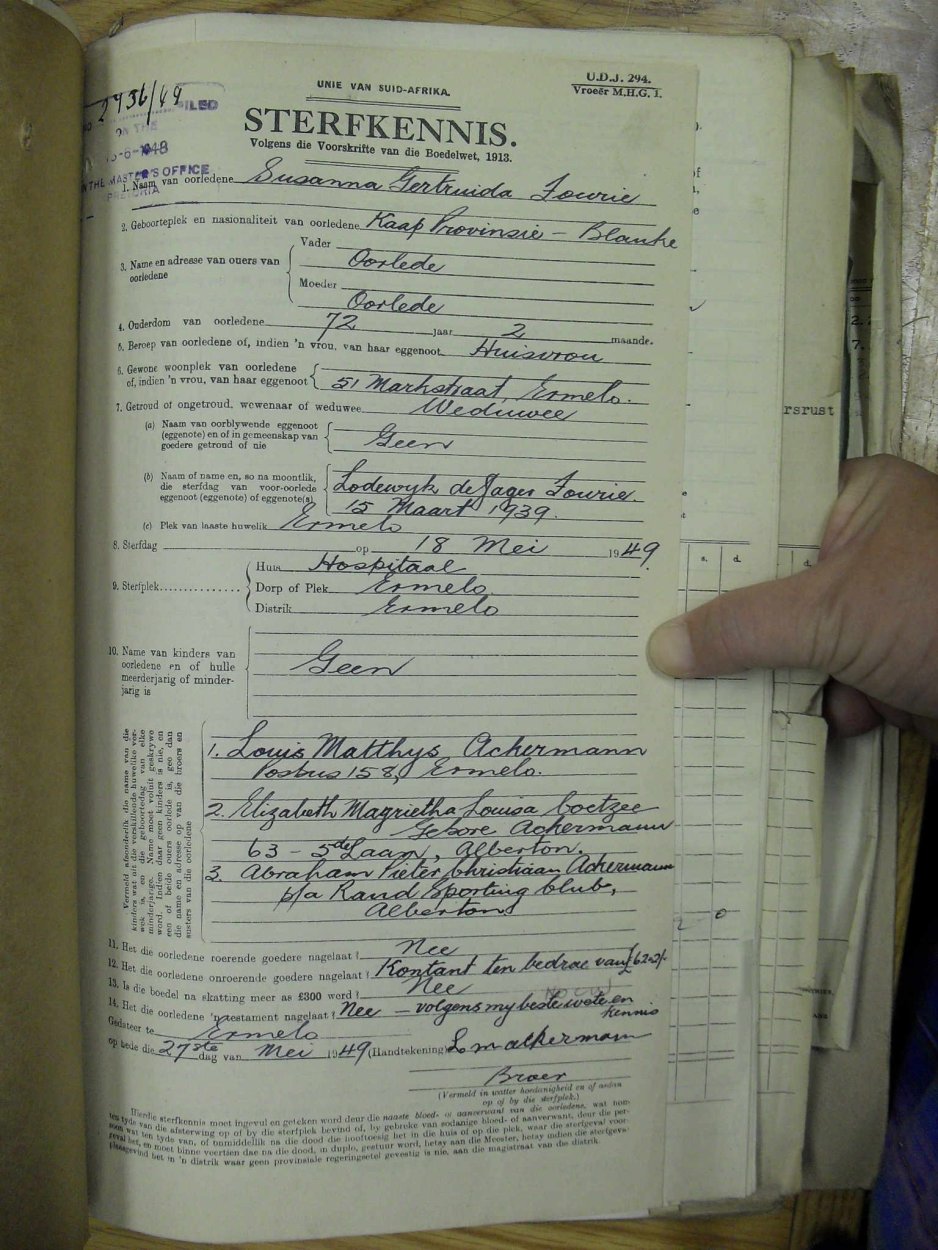 UNIE VAN SUID-AFRIKA.
U.D.J. 294.
Vroeër M.H.G. 1.
2936/49
FILED
ON THE
IN THE MASTER'S OFFICE
PRETORIA
STERFKENNIS.
Volgens die Voorskrifte van die Boedelwet, 1913.
1. Naam van oorledene Susanna Gertruida Fourie
2. Geboorteplek en nasionaliteit van oorledene Kaap Provinsie – Blanke
3. Name en adresse van ouers van oorledene
Vader
Oorlede
Moeder
Oorlede
4. Ouderdom van oorledene 72 jaar 2 maande.
5. Beroep van oorledene of, indien 'n vrou, van haar eggenoot Huisvrou
6. Gewone woonplek van oorledene
of, indien 'n vrou, van haar eggenoot 51 Markstraat, Ermelo.
7. Getroud of ongetroud, wewenaar of weduwee Weduwee
(a) Naam van oorblywende eggenoot
(eggenote) en of in gemeenskap van
goedere getroud of nie
Geen
(b) Naam of name en, so na moontlik,
die sterfdag van voor-oorlede
eggenoot (eggenote) of eggenote(s)
Lodewyk de Jager Fourie
15 Maart 1939.
(c) Plek van laaste huwelik Ermelo
8. Sterfdag op 18 Mei 1949.
9. Sterfplek
Huis Hospitaal
Dorp of Plek Ermelo
Distrik Ermelo
10. Name van kinders van
oorledene en of hulle
meerderjarig of minder-
jarig is
Geen
Vermeld afsonderlik die name van die
kinders wat uit die verskillende huwelike vor-
wek is en die geboortedag van elke
minderjarige. Name moet voluit geskrywe
word. Indien daar geen kinders is nie, en
een of beide ouers oorlede is, gee dan
die name en adresse op van die broers en
susters van die oorledene
1. Louis Matthys Ackermann
Posbus 158, Ermelo.
2. Elizabeth Magrietha Louisa Coetzee
Gebore Ackermann
63 – 5de Laan, Alberton.
3. Abraham Pieter Christiaan Ackermann
p/a Rand Sporting Club,
Alberton
11. Het die oorledene roerende goedere nagelaat? Nee
12. Het die oorledene onroerende goedere nagelaat? Kontant ten bedrae van £62-2/-
13. Is die boedel na skatting meer as £300 werd? Nee
14. Het die oorledene 'n testament nagelaat? Nee – volgens my beste wete en
kennis
Gedateer te Ermelo
op hede die 27ste dag van Mei 1949 (Handtekening) L m ackermann
Broer
(Vermeld in watter hoedanigheid en of ardan
op of by die sterfplek.)
Hierdie sterfkennis moet ingevul en geteken word deur die naaste bloed- of aanverwant van die oorledene, wat
ten tyde van die afsterwing op of by die sterfplek bevind of, by gebreke van sodanige bloed- of aanverwant, deur die per-
soon wat ten tyde van, of onmiddellik na die dood die hooftoesig het in die huis of op die plek, waar die sterfgeval voor-
geval het, en moet binne veertien dae na die dood, in duplo, gestuur word, hetsy aan die Meester, hetsy indien die sterfgeval
plaasgevind het in 'n distrik waar geen provinsiale regeringsetel gevestig is nie, aan die magistraat van die distrik.
rsrust
s. d.
d.